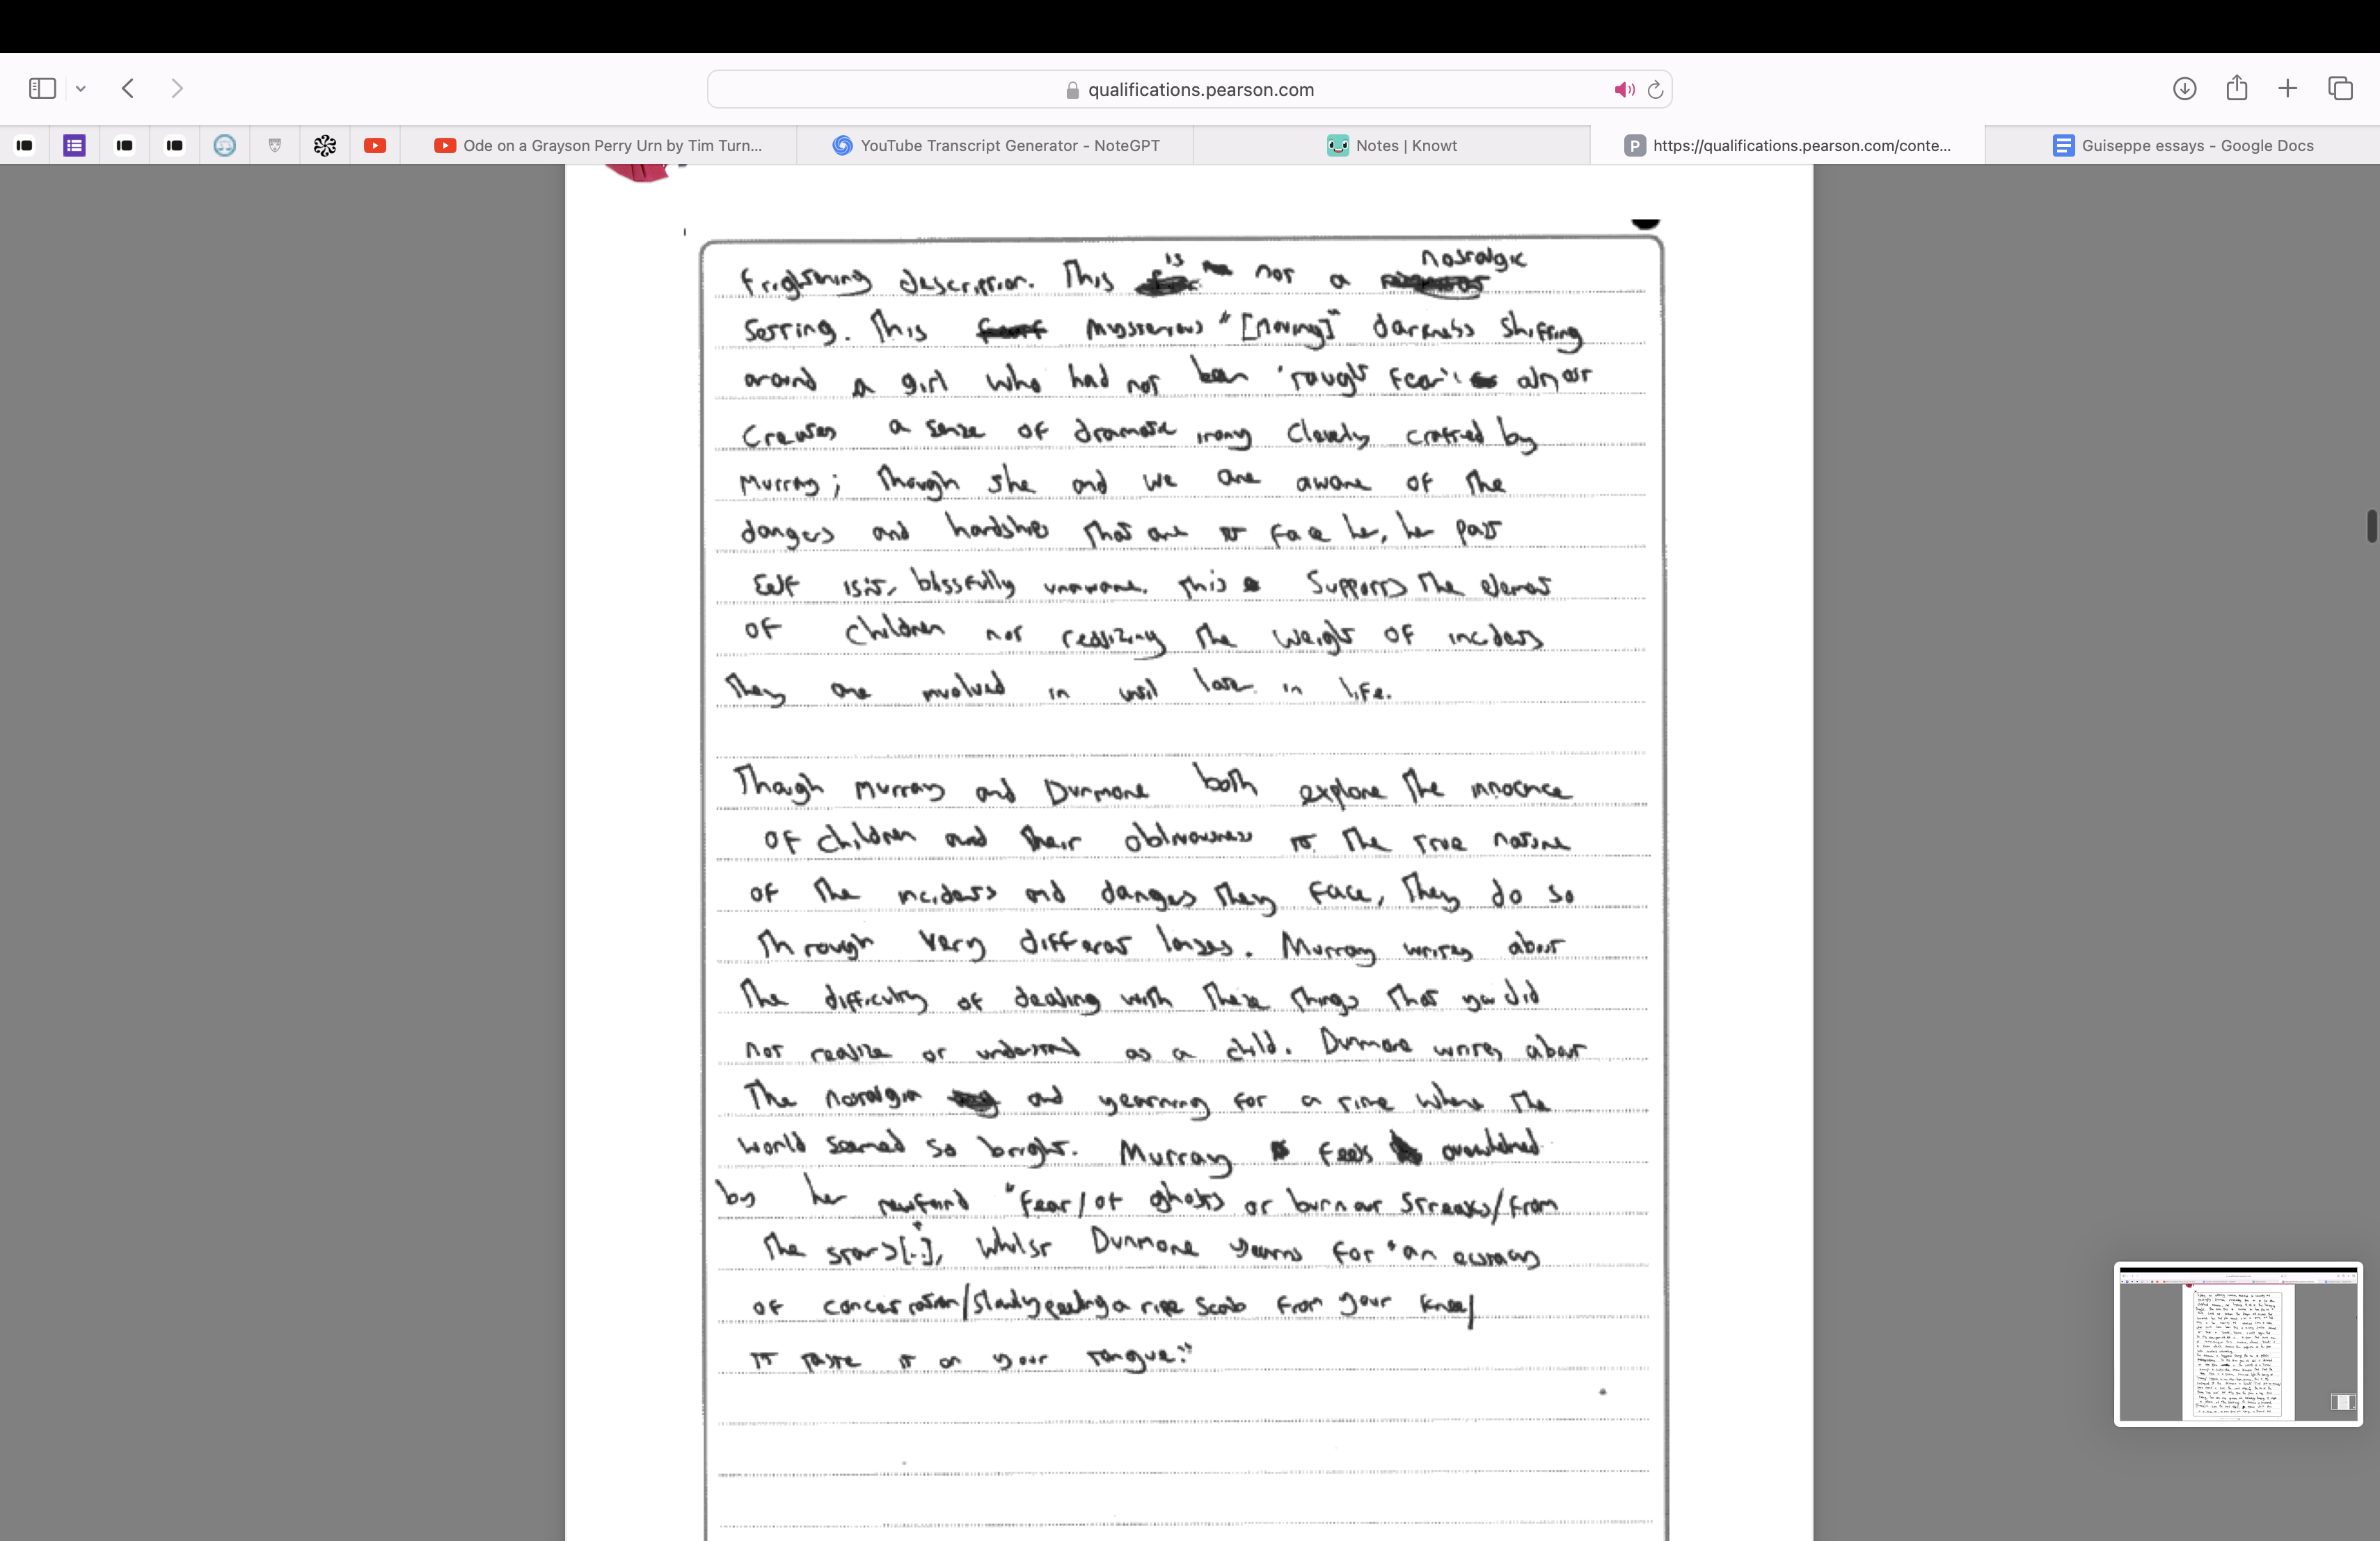 qualifications.pearson.com
Ode on a Grayson Perry Urn by Tim Turn...
YouTube Transcript Generator - NoteGPT
Notes | Knowt
P
https://qualifications.pearson.com/conte...
Guiseppe essays - Google Docs
frightning description. This is not a nostalgic
setting. This mysterious "[moving]" darkness shifting
around a girl who had not been 'taught fear' almost
creates a sense of dramatic irony cleverly crafted by
Murray; though she and we are aware of the
dangers and hardships that are to face her, her past
self isn't, blissfully unaware. This supports the element
of children not realizing the weight of incidents
they are involved in until later in life.
Though Murray and Dunmore both explore the innocence
of children and their obliviousness to the true nature
of the incidents and dangers they face, they do so
through very different lenses. Murray writes about
the difficulty of dealing with these things that you did
not realize or understand as a child. Dunmore writes about
the nostalgia and yearning for a time where the
world seemed so bright. Murray feels overwhelmed
by her newfound "fear/of ghosts or burnout streaks/from
the stars[..]", whilst Dunmore yearns for "an ecstasy
of concentration/slowly peeling a ripe scab from your knee/
to taste it on your tongue."